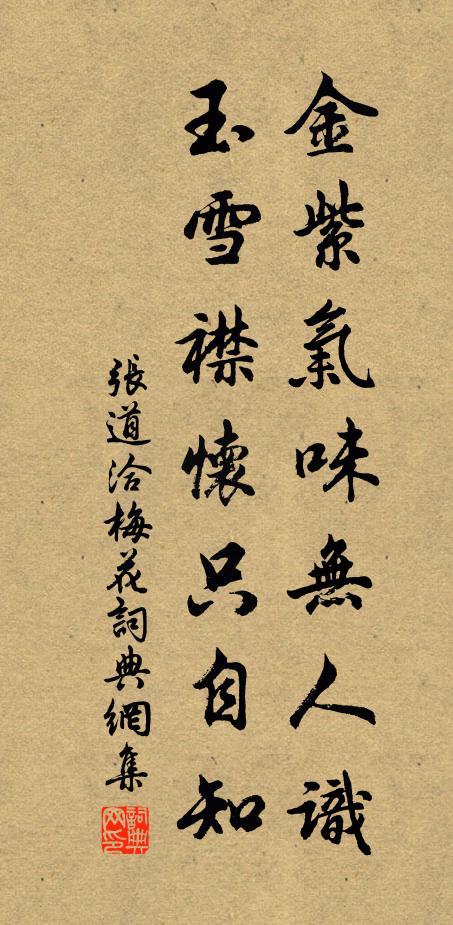 金紫氣味無人識
玉雪襟懷只自知
張道洽梅花詞典網集
詞典网印